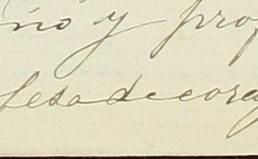 no y prop
sesa de cora